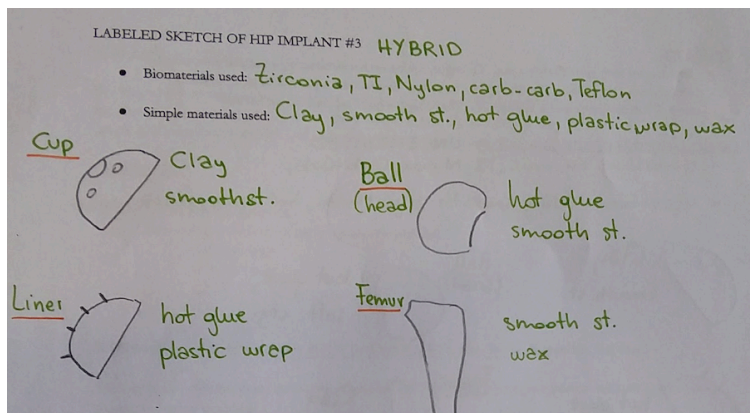 LABELED SKETCH OF HIP IMPLANT #3 HYBRID
• Biomaterials used: Zirconia, TI, Nylon, carb-carb, Teflon
• Simple materials used: Clay, smooth st., hot glue, plastic wrap, wax
Cup
Clay
smooth st.
Ball
(head)
hot glue
smooth st.
Liner
hot glue
plastic wrep
Femur
smooth st.
wax